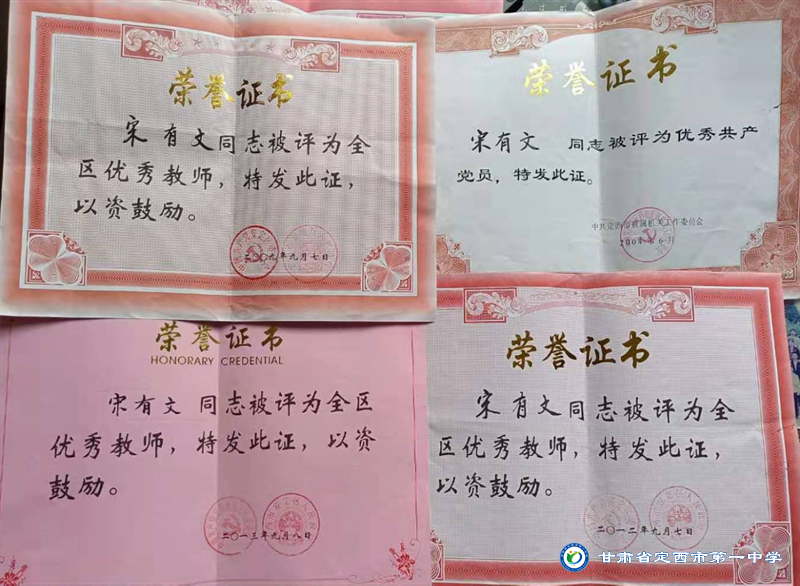 荣誉证书
宋有文同志被评为全
区优秀教师，特发此证，
以资鼓励。
二〇〇九年九月七日
荣誉证书
宋有文 同志被评为优秀共产
党员，特发此证。
荣誉证书
HONORARY CREDENTIAL
宋有文同志被评为全区
优秀教师，特发此证，以资
鼓励。
二〇一三年九月八日
荣誉证书
宋有文同志被评为全
区优秀教师，特发此证，
以资鼓励。
二〇一二年九月七日
甘肃省定西市第一中学